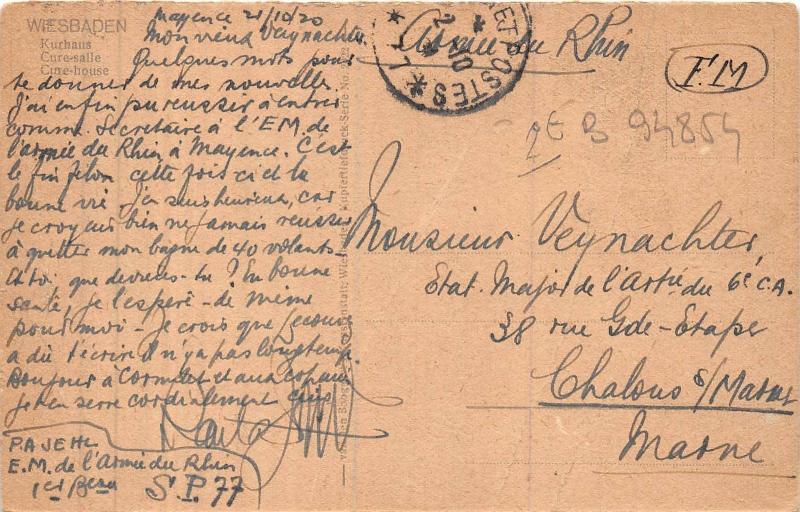 WIESBADEN
Kurhaus
Cure-salle
Cure-house
Mayence 21/10/20
Mon vieux Veynachter
Quelques mots pour
te donner de mes nouvelles.
J'ai enfin pu reussir à entrer
comme Secretaire à l'E.M. de
l'armée du Rhin à Mayence. C'est
le fin filon cette fois ci et la
bonne vie. J'en suis heureux, car
je croyais bien ne jamais reussir
à quitter mon bagne de 40 volants
Et toi, que deviens-tu? En bonne
santé, je l'espère - de même
pour moi - Je crois que
a dû t'écrire il n'y a pas longtemps.
Bonjour à Cormelet et aux copains
Je t'en serre cordialement cinq
P.A JEHL
E.M. de l'Armée du Rhin
1er Beau
S.P. 77
Kupfertiefdruck-Serie No.
POSTES
Armée du Rhin
F.M
2E B 94854
Monsieur Veynachter,
Etat. Major de l'Artie du 6e C.A.
38 rue Gde-Etape
Chalons s/Marne
Marne